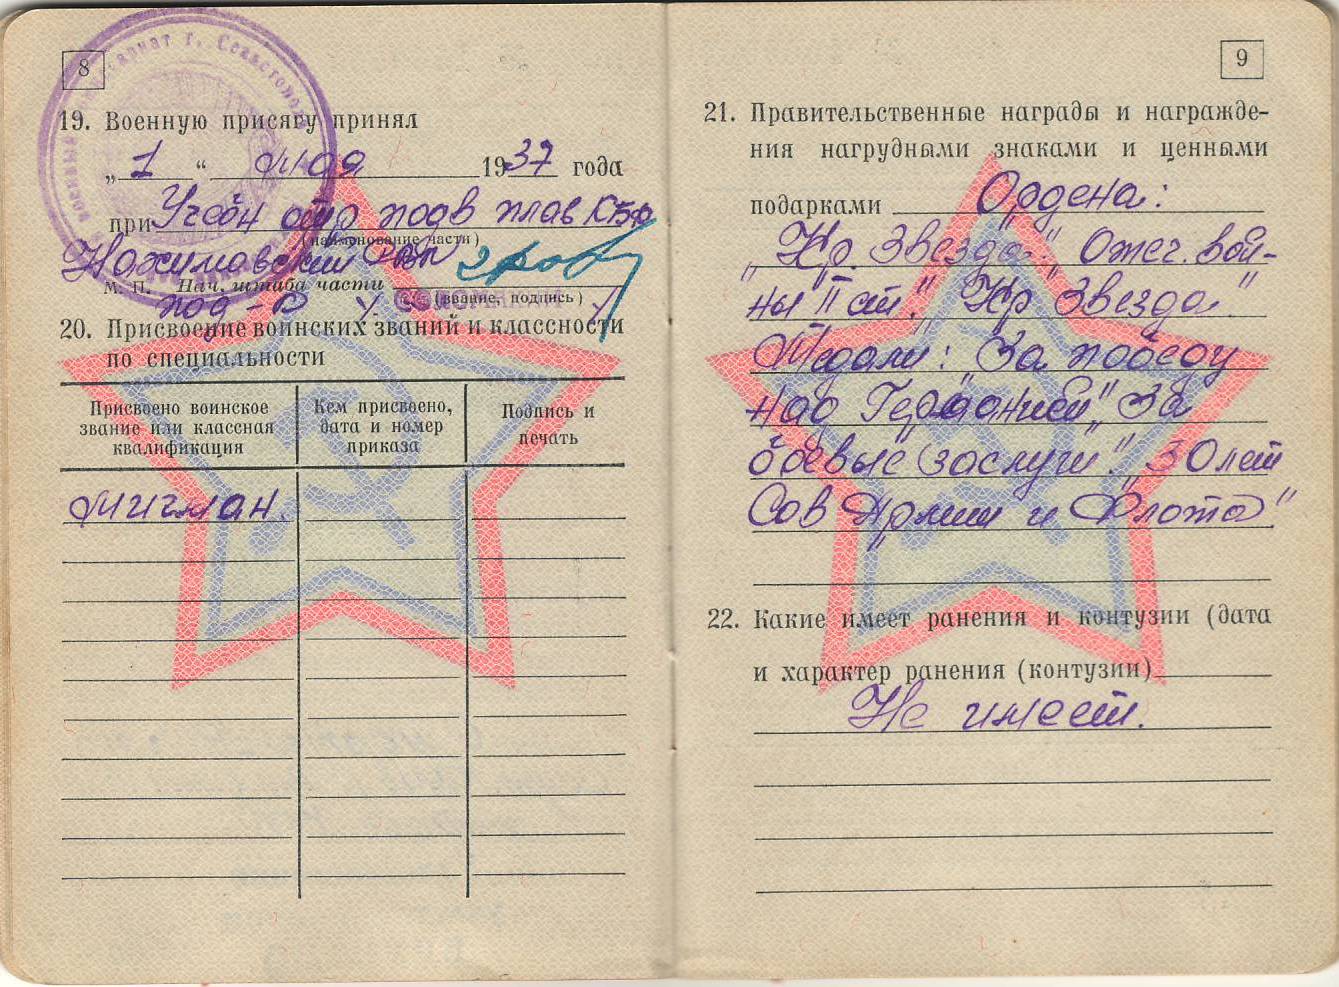 8
19. Военную присягу принял
„1“ мая 1937 года
при Учебн отр подв плав КБФ
(наименование части)
Нахимовский РВК
М. П. Нач. штаба части
(звание, подпись)
под-к
20. Присвоение воинских званий и классности
по специальности
Присвоено воинское
звание или классная
квалификация
Кем присвоено,
дата и номер
приказа
Подпись и
печать
мичман.
9
21. Правительственные награды и награжде-
ния нагрудными знаками и ценными
подарками Ордена:
„Кр. Звезда“ Отеч. вой-
ны II ст." „Кр Звезда"
Медали: „За победу
над Германией" „За
боевые заслуги". „30 лет
Сов Армии и Флота"
22. Какие имеет ранения и контузии (дата
и характер ранения (контузии)
Не имеет.